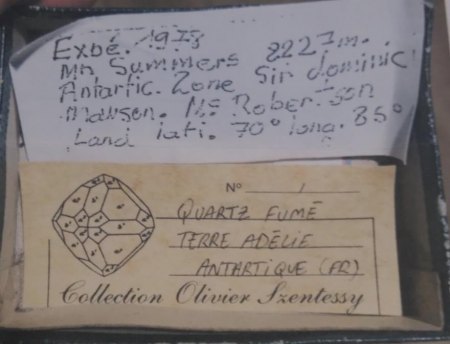 Expé. 1973 2227m.
Mn Summers
Antartic. Zone Sir dominic
mawsen. Mc Robertson
Land lati. 70° long. 85°
N° /
QUARTZ FUMÉ
TERRE ADÉLIE
ANTARTIQUE (FR)
Collection Olivier Szentessy